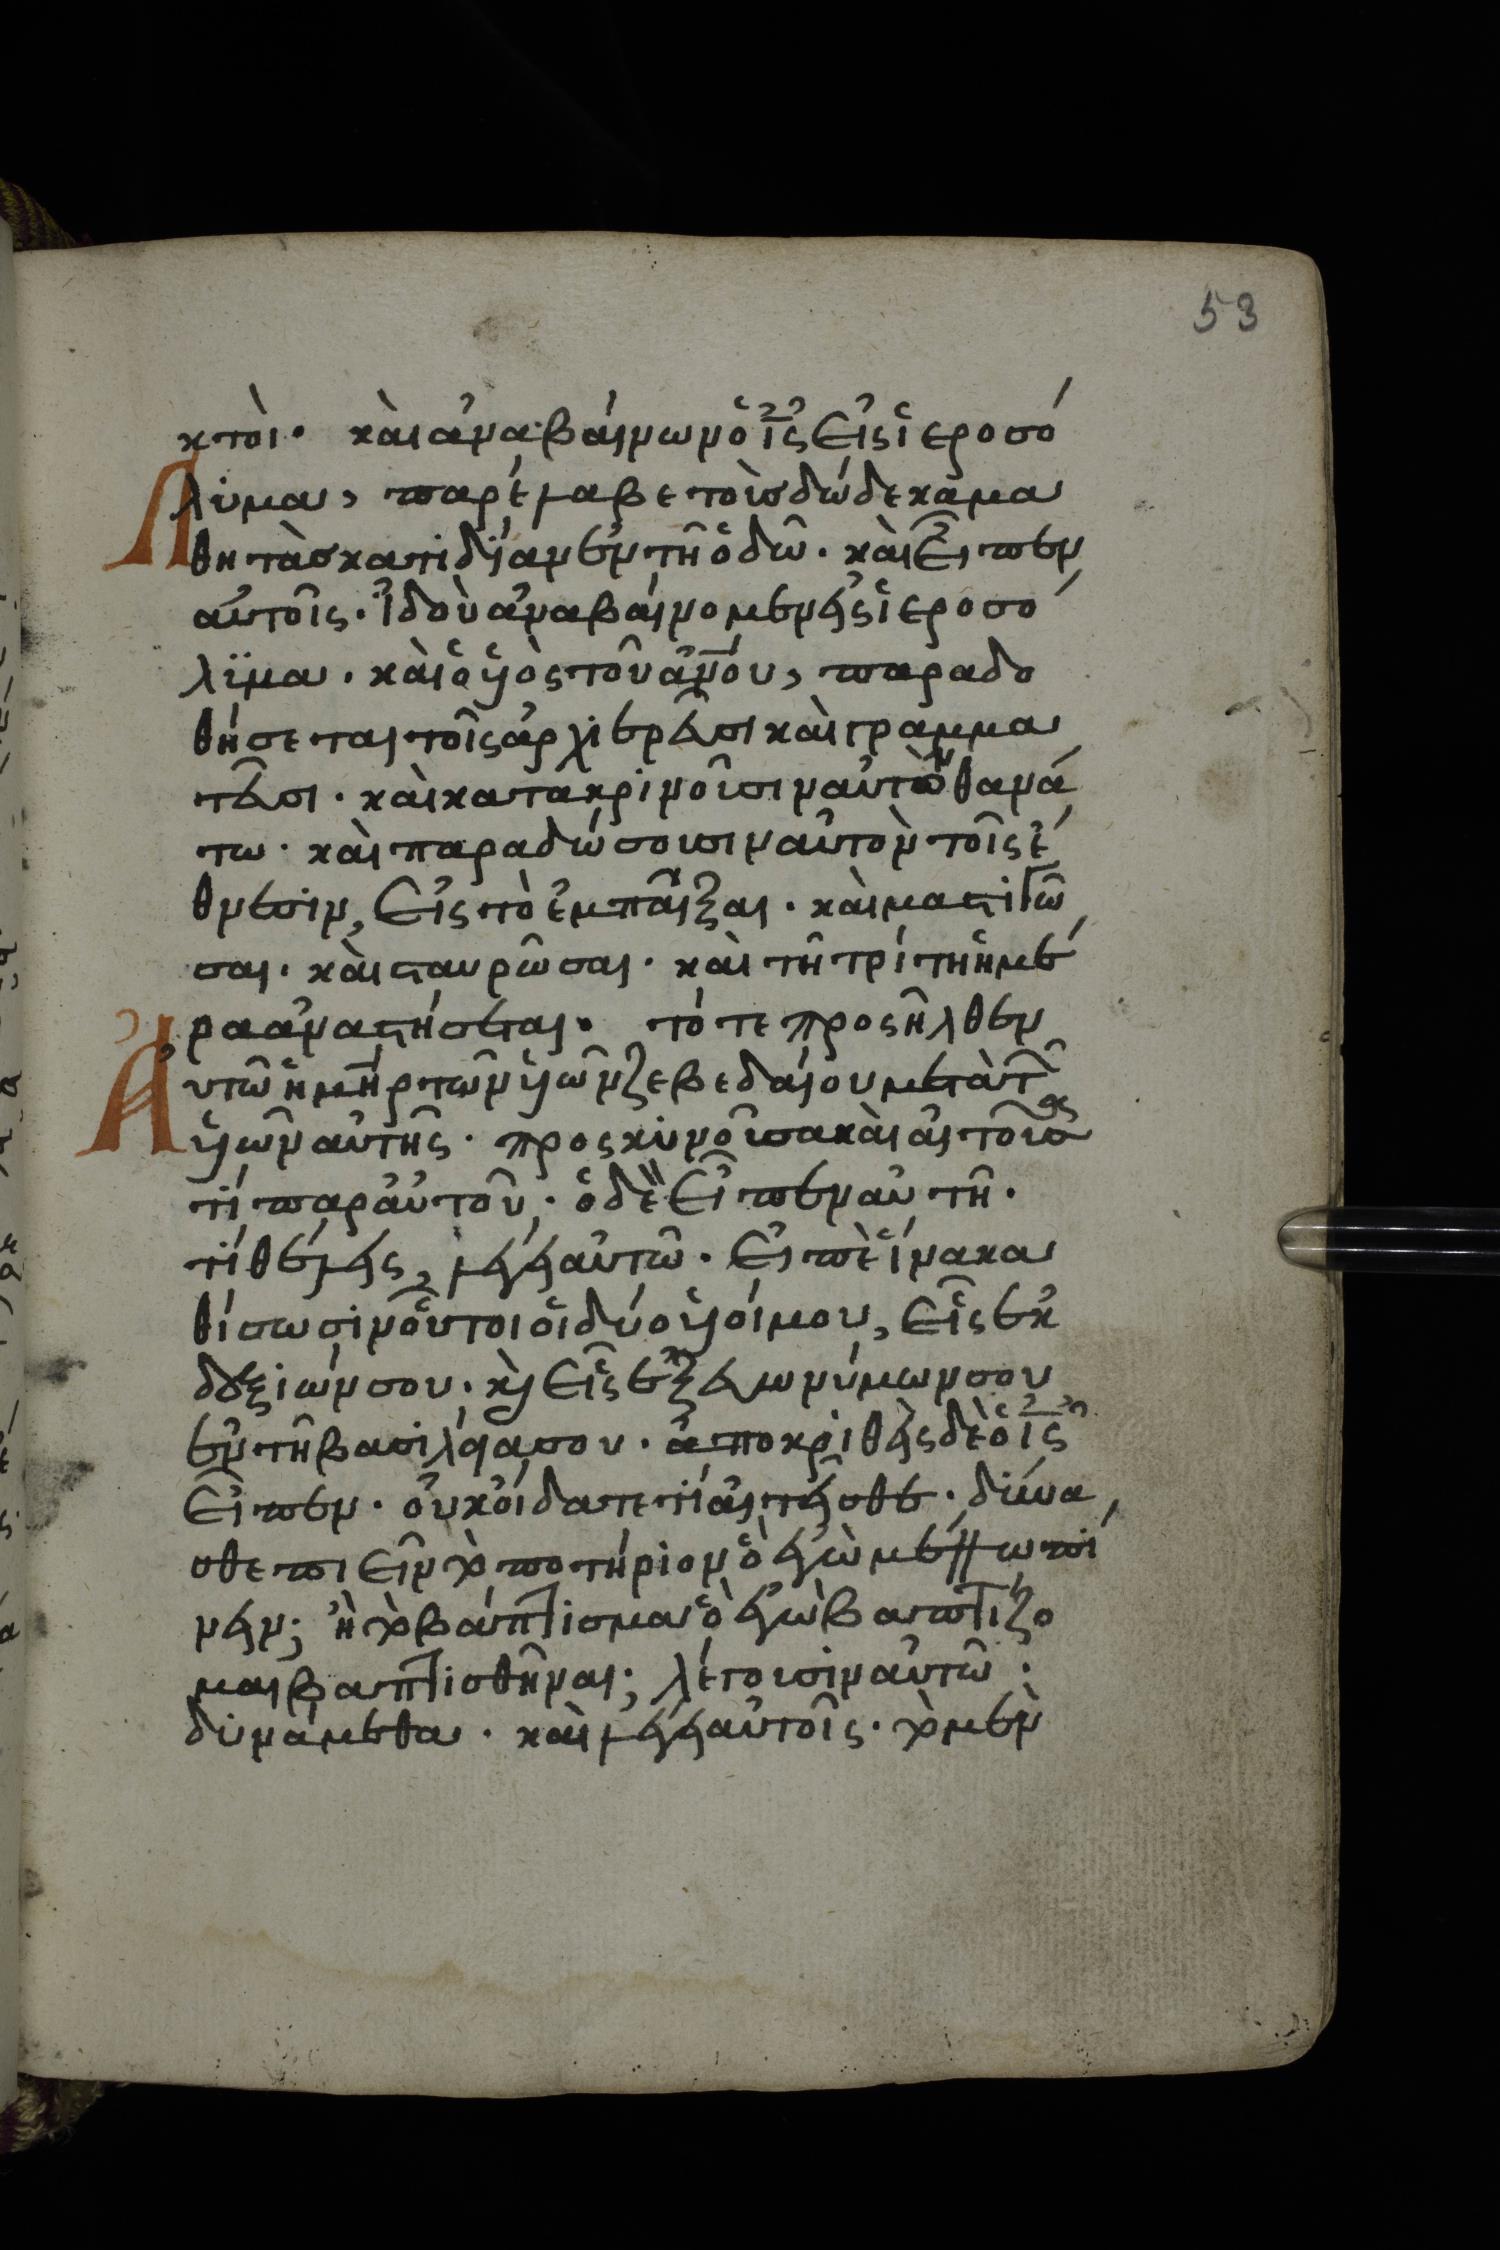 53
κτοί· καὶ ἀναβαίνων ὁ ἰς εἰς ἱεροσό
λυμα, παρέλαβε τοὺσ δώδεκα μα
θητὰσ κατιδίαν ἐν τῆ ὁδῶ· καὶ εἶπεν
αὐτοῖς· ἰδοὺ ἀναβαίνομεν εἰς ἱεροσό
λϋμα· καὶ ὁ υἱὸς τοῦ ἀνου, παραδο
θήσεται τοῖς ἀρχιερεῦσι καὶ γραμμα
τεῦσι· καὶ κατακρινοῦσιν αὐτὸν θανά
τω· καὶ παραδώσουσιν αὐτὸν τοῖς ἔ
θνεσιν, εἰς τὸ ἐμπαῖξαι· καὶ μαστιγῶ
σαι· καὶ σταυρῶσαι· καὶ τῆ τρίτη ἡμέ
ρα ἀναστήσεται· τότε προςῆλθεν
Αυτῶ ἡ μηρ τῶν υἱῶν ζεβεδαίου μετὰ τῶν
υἱῶν αὐτῆς· προςκυνοῦσα καὶ αἰτοῦσά
τι παρ αὐτοῦ· ὁ δὲ εἶπεν αὐτῆ·
τί θέλεις, λέγει αὐτῶ· εἰπὲ ἵνα κα
θίσωσιν οὗτοι οἱ δύο υἱοί μου, εἷς ἐκ
δεξιών σου· κὶ εἷς ἐξ εὐωνύμων σου
ἐν τῆ βασιλεία σου· ἀποκριθεὶς δὲ ὁ ἰς
εἶπεν· οὐκ οἴδατε τί αἰτεῖσθε· δύνα
σθε πιεῖν τὸ ποτήριον ὃ ἐγὼ μέλλω πί
νειν; ἢ τὸ βάπτισμα ὃ ἐγὼ βαπτίζο
μαι βαπτισθῆναι; λέγουσιν αὐτῶ·
δυνάμεθα· καὶ λέγει αὐτοῖς· τὸ μὲν